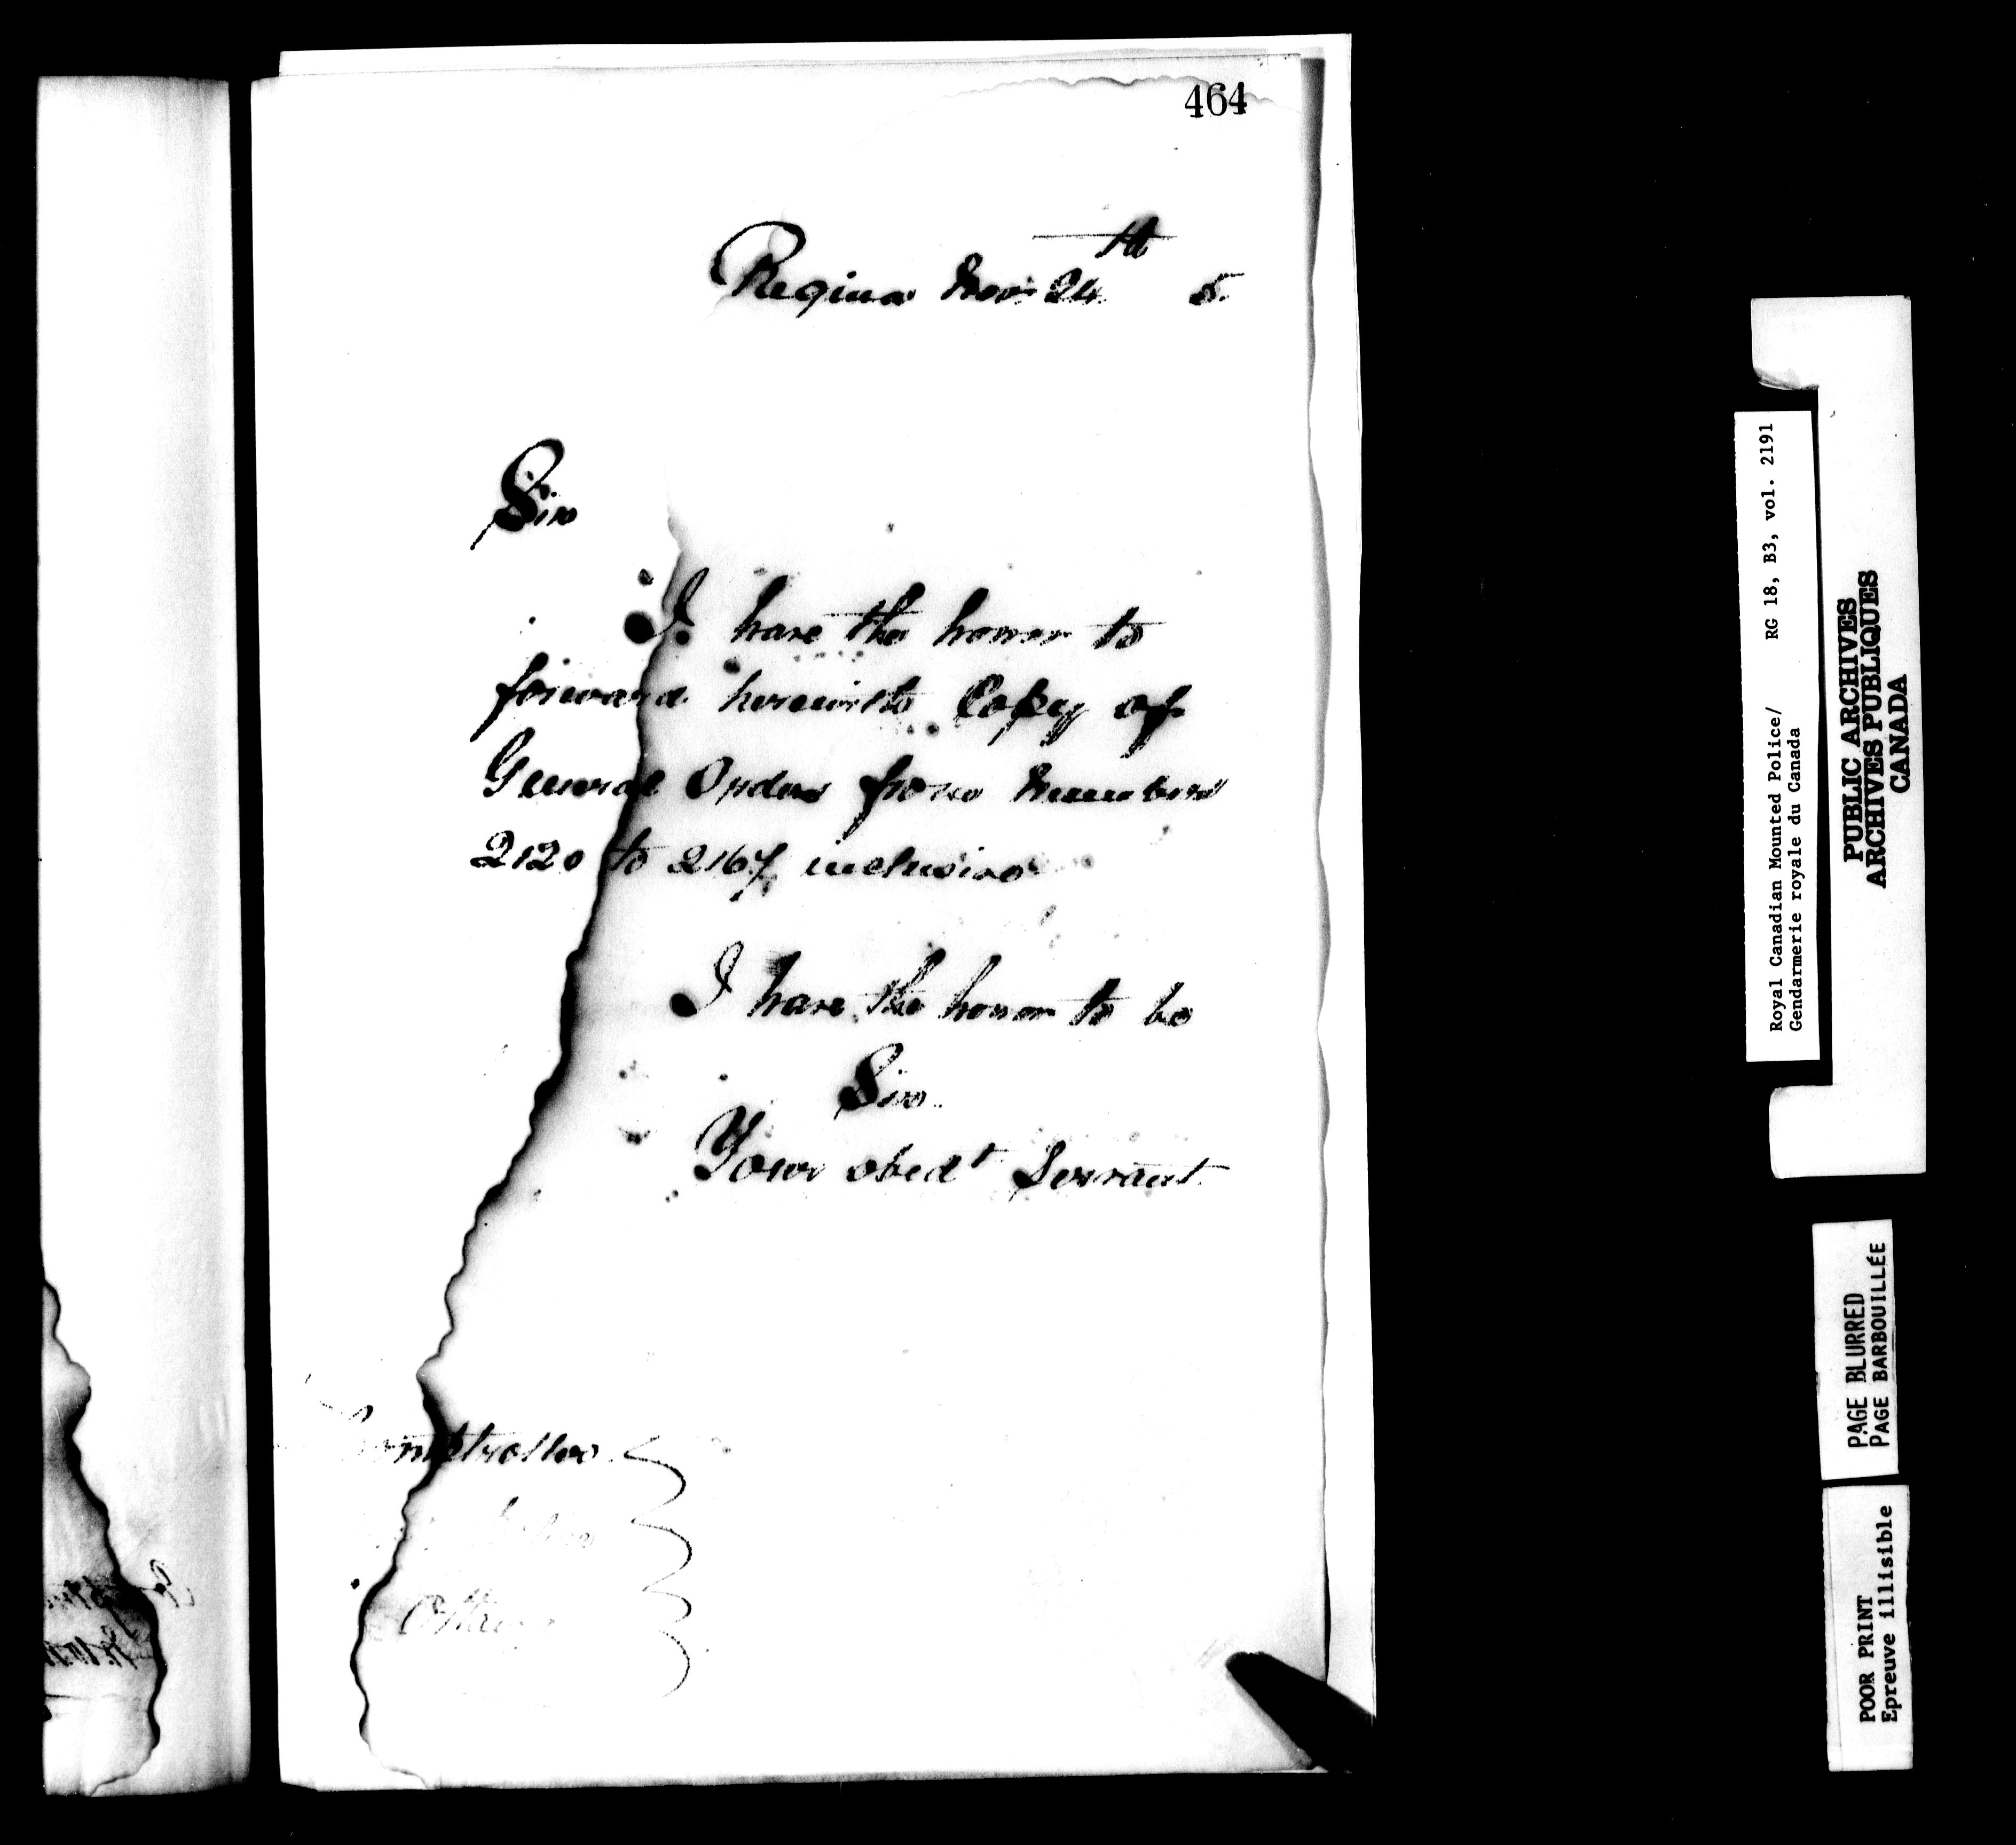 464
Regina Nov 24th 5.
Sir
I have the honor to
forward herewith Copy of
General Orders from Numbers
2120 to 2167 inclusive
I have the honor to be
Sir
Your obedt Servant
Comptroller
Ottawa
Royal Canadian Mounted Police/ RG 18, B3, vol. 2191
Gendarmerie royale du Canada
PUBLIC ARCHIVES
ARCHIVES PUBLIQUES
CANADA
PAGE BLURRED
PAGE BARBOUILLÉE
POOR PRINT
Epreuve illisible